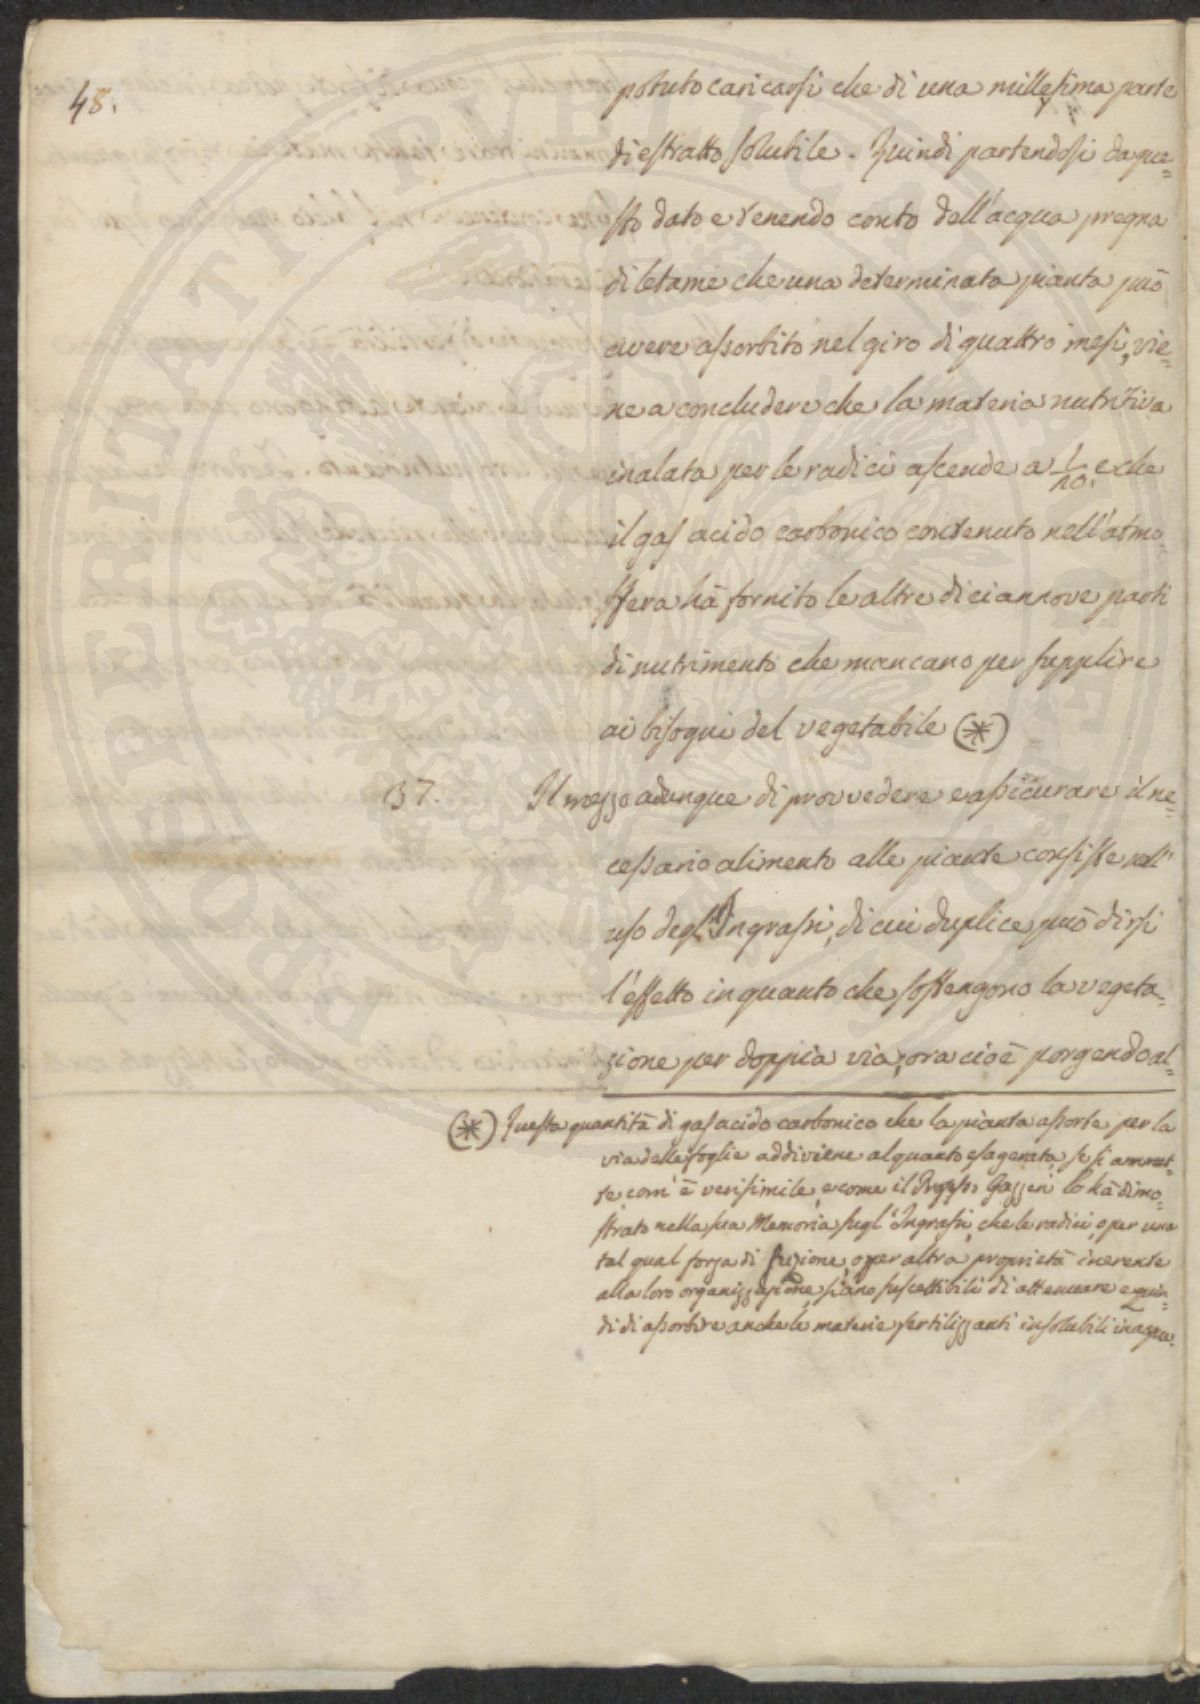 48.
potuto caricarsi che di una millesima parte
di estratto solubile. Quindi partendosi da que=
sto dato e tenendo conto dell'acqua pregna
di letame che una determinata pianta può
avere assorbito nel giro di quattro mesi, vie=
ne a concludere che la materia nutritiva
inalata per le radici ascende a 1/20. e che
il gas acido carbonico contenuto nell'atmo=
sfera hà fornito le altre diciannove parti
di nutrimento che mancano per supplire
ai bisogni del vegetabile (*)
137. Il mezzo adunque di provvedere e assicurare il ne=
cessario alimento alle piante consiste nell'
uso degl'Ingrassi, di cui duplice può dirsi
l'effetto in quanto che sostengono la vegeta=
zione per doppia via, ora cioè porgendo al=
(*) Questa quantità di gas acido carbonico che la pianta assorbe per la
via delle foglie addiviene alquanto esagerata, se si ammet=
te, com'è verisimile, e come il Gazzeri lo hà dimo=
strato nella sua Memoria sugl'Ingrassi, che le radici, o per una
tal qual forza di suzione, o per altra proprietà inerente
alla loro organizzazione, siano suscettibili di attenuare e quin=
di di assorbire anche le materie fertilizzanti insolubili in acqua.
PROSPERITATI PVBLICAE